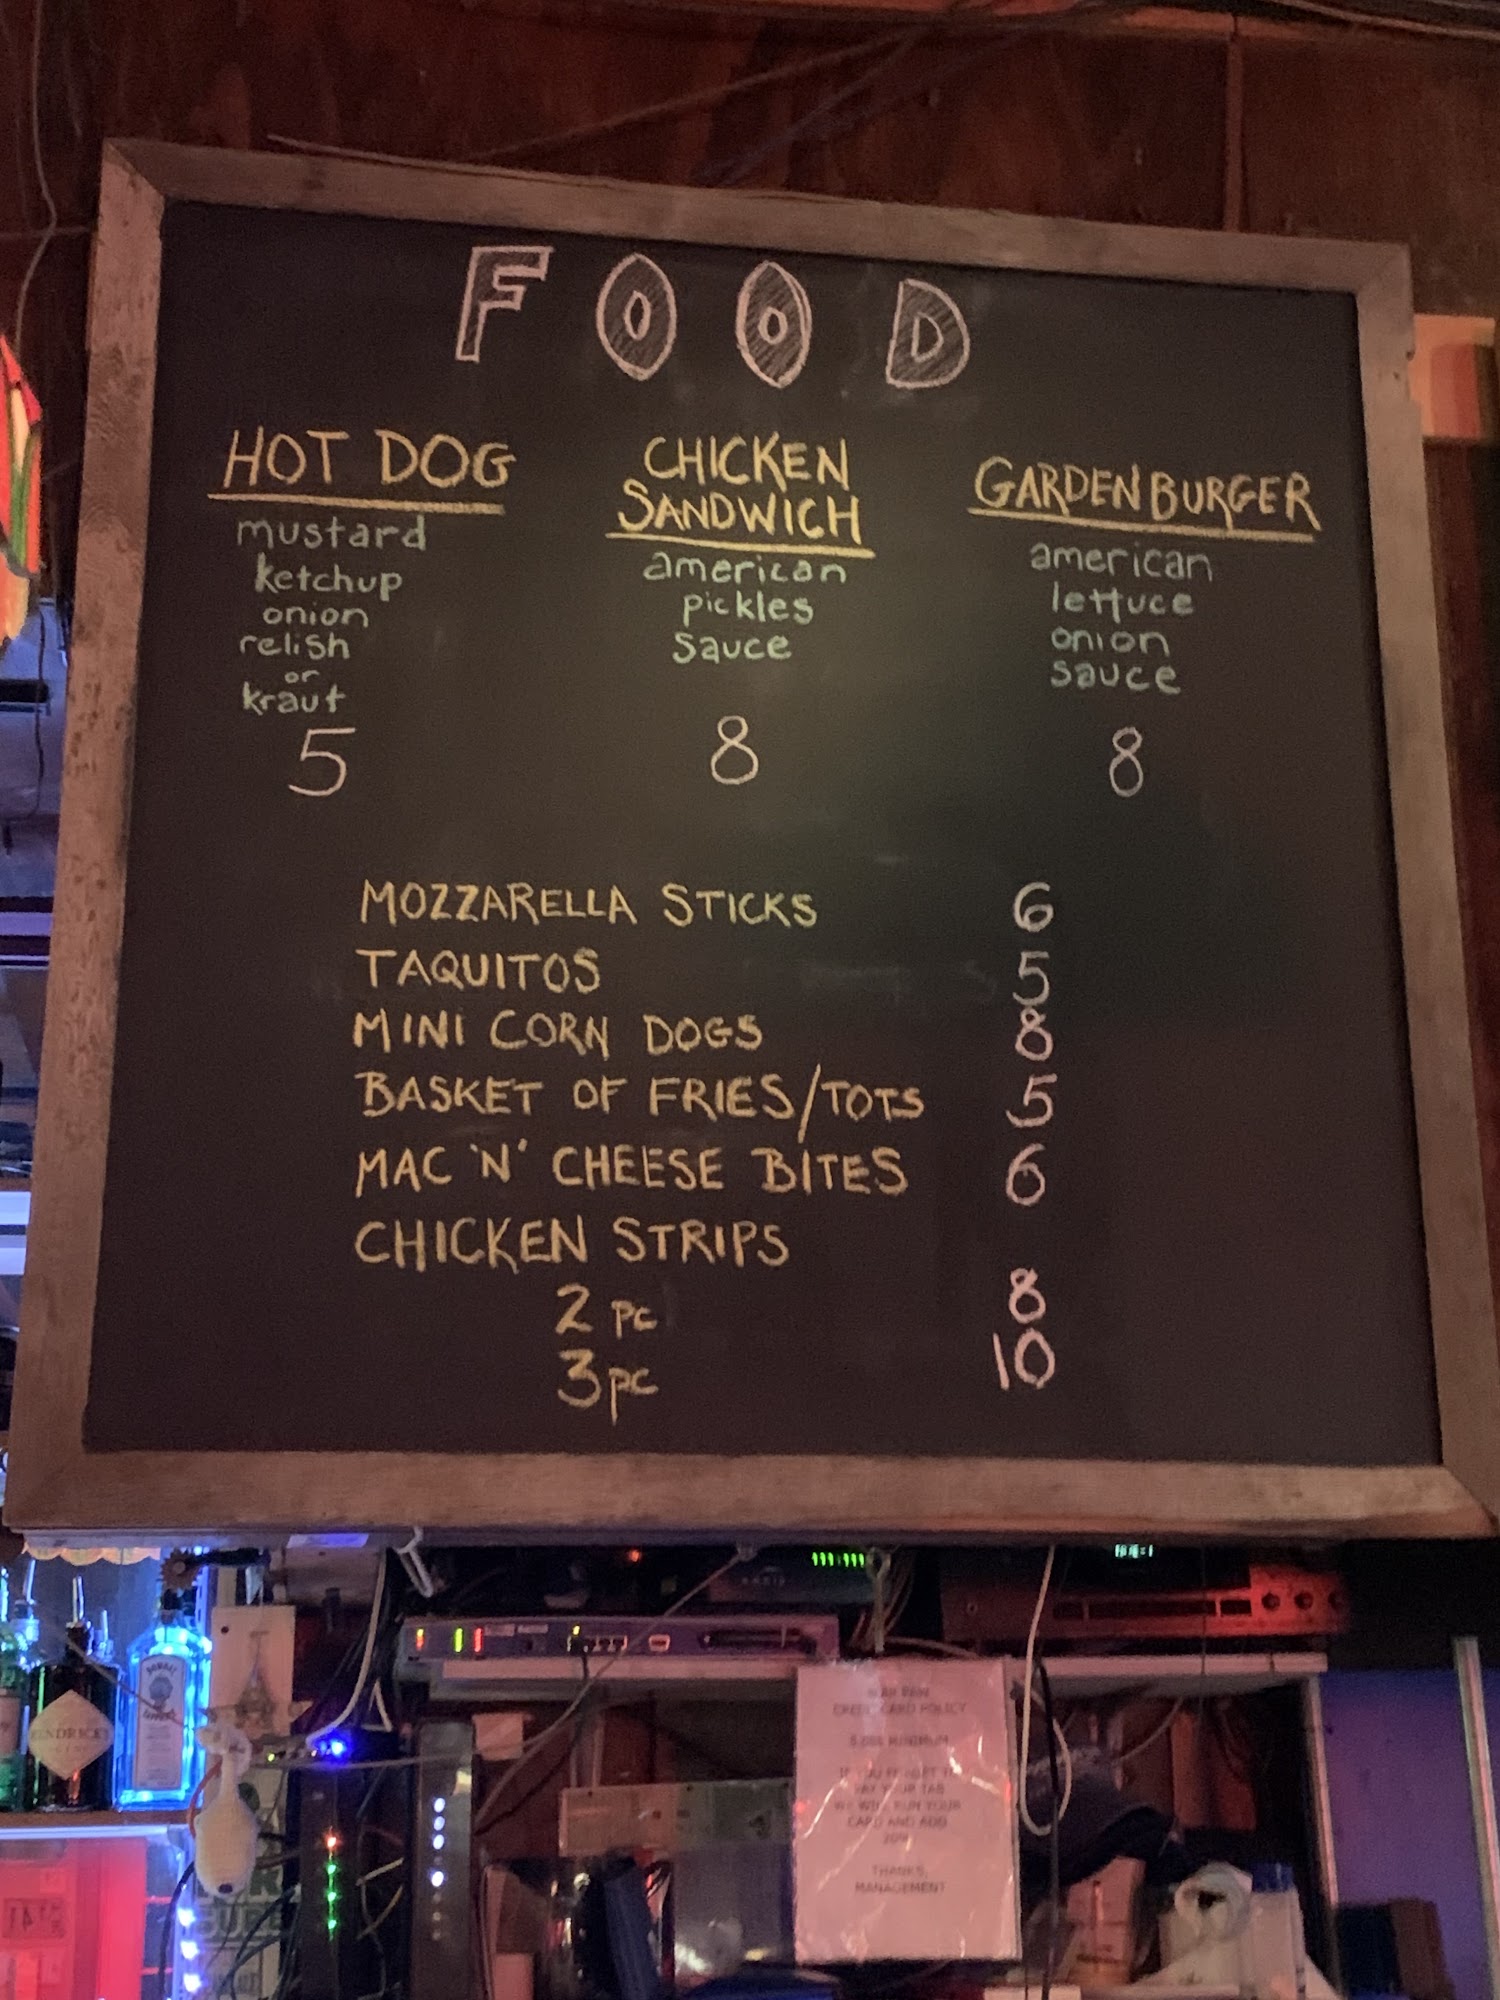 FOOD
HOT DOG
mustard
ketchup
onion
relish
or
kraut
5
CHICKEN
SANDWICH
american
pickles
sauce
8
GARDENBURGER
american
lettuce
onion
sauce
8
MOZZARELLA STICKS 6
TAQUITOS 5
MINI CORN DOGS 8
BASKET OF FRIES/TOTS 5
MAC 'N' CHEESE BITES 6
CHICKEN STRIPS
2 pc 8
3pc 10
HENDRICK'S
BOMBAY
CREDIT CARD POLICY
MINIMUM
IF YOU FORGET TO
PAY YOUR TAB
WE WILL RUN YOUR
CARD AND ADD
20%
THANKS,
MANAGEMENT